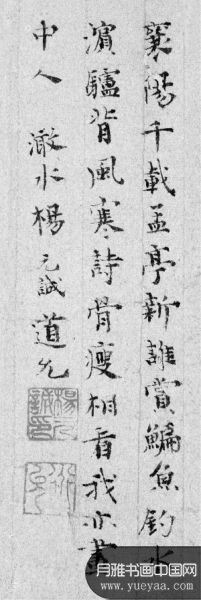 襄陽千載孟亭新誰賞鯿魚釣水
濱驢背風寒詩骨瘦相看我亦畫
中人 澉水楊元誠道凡
楊元
誠印
月雅书画中国网
www.yueyaa.com